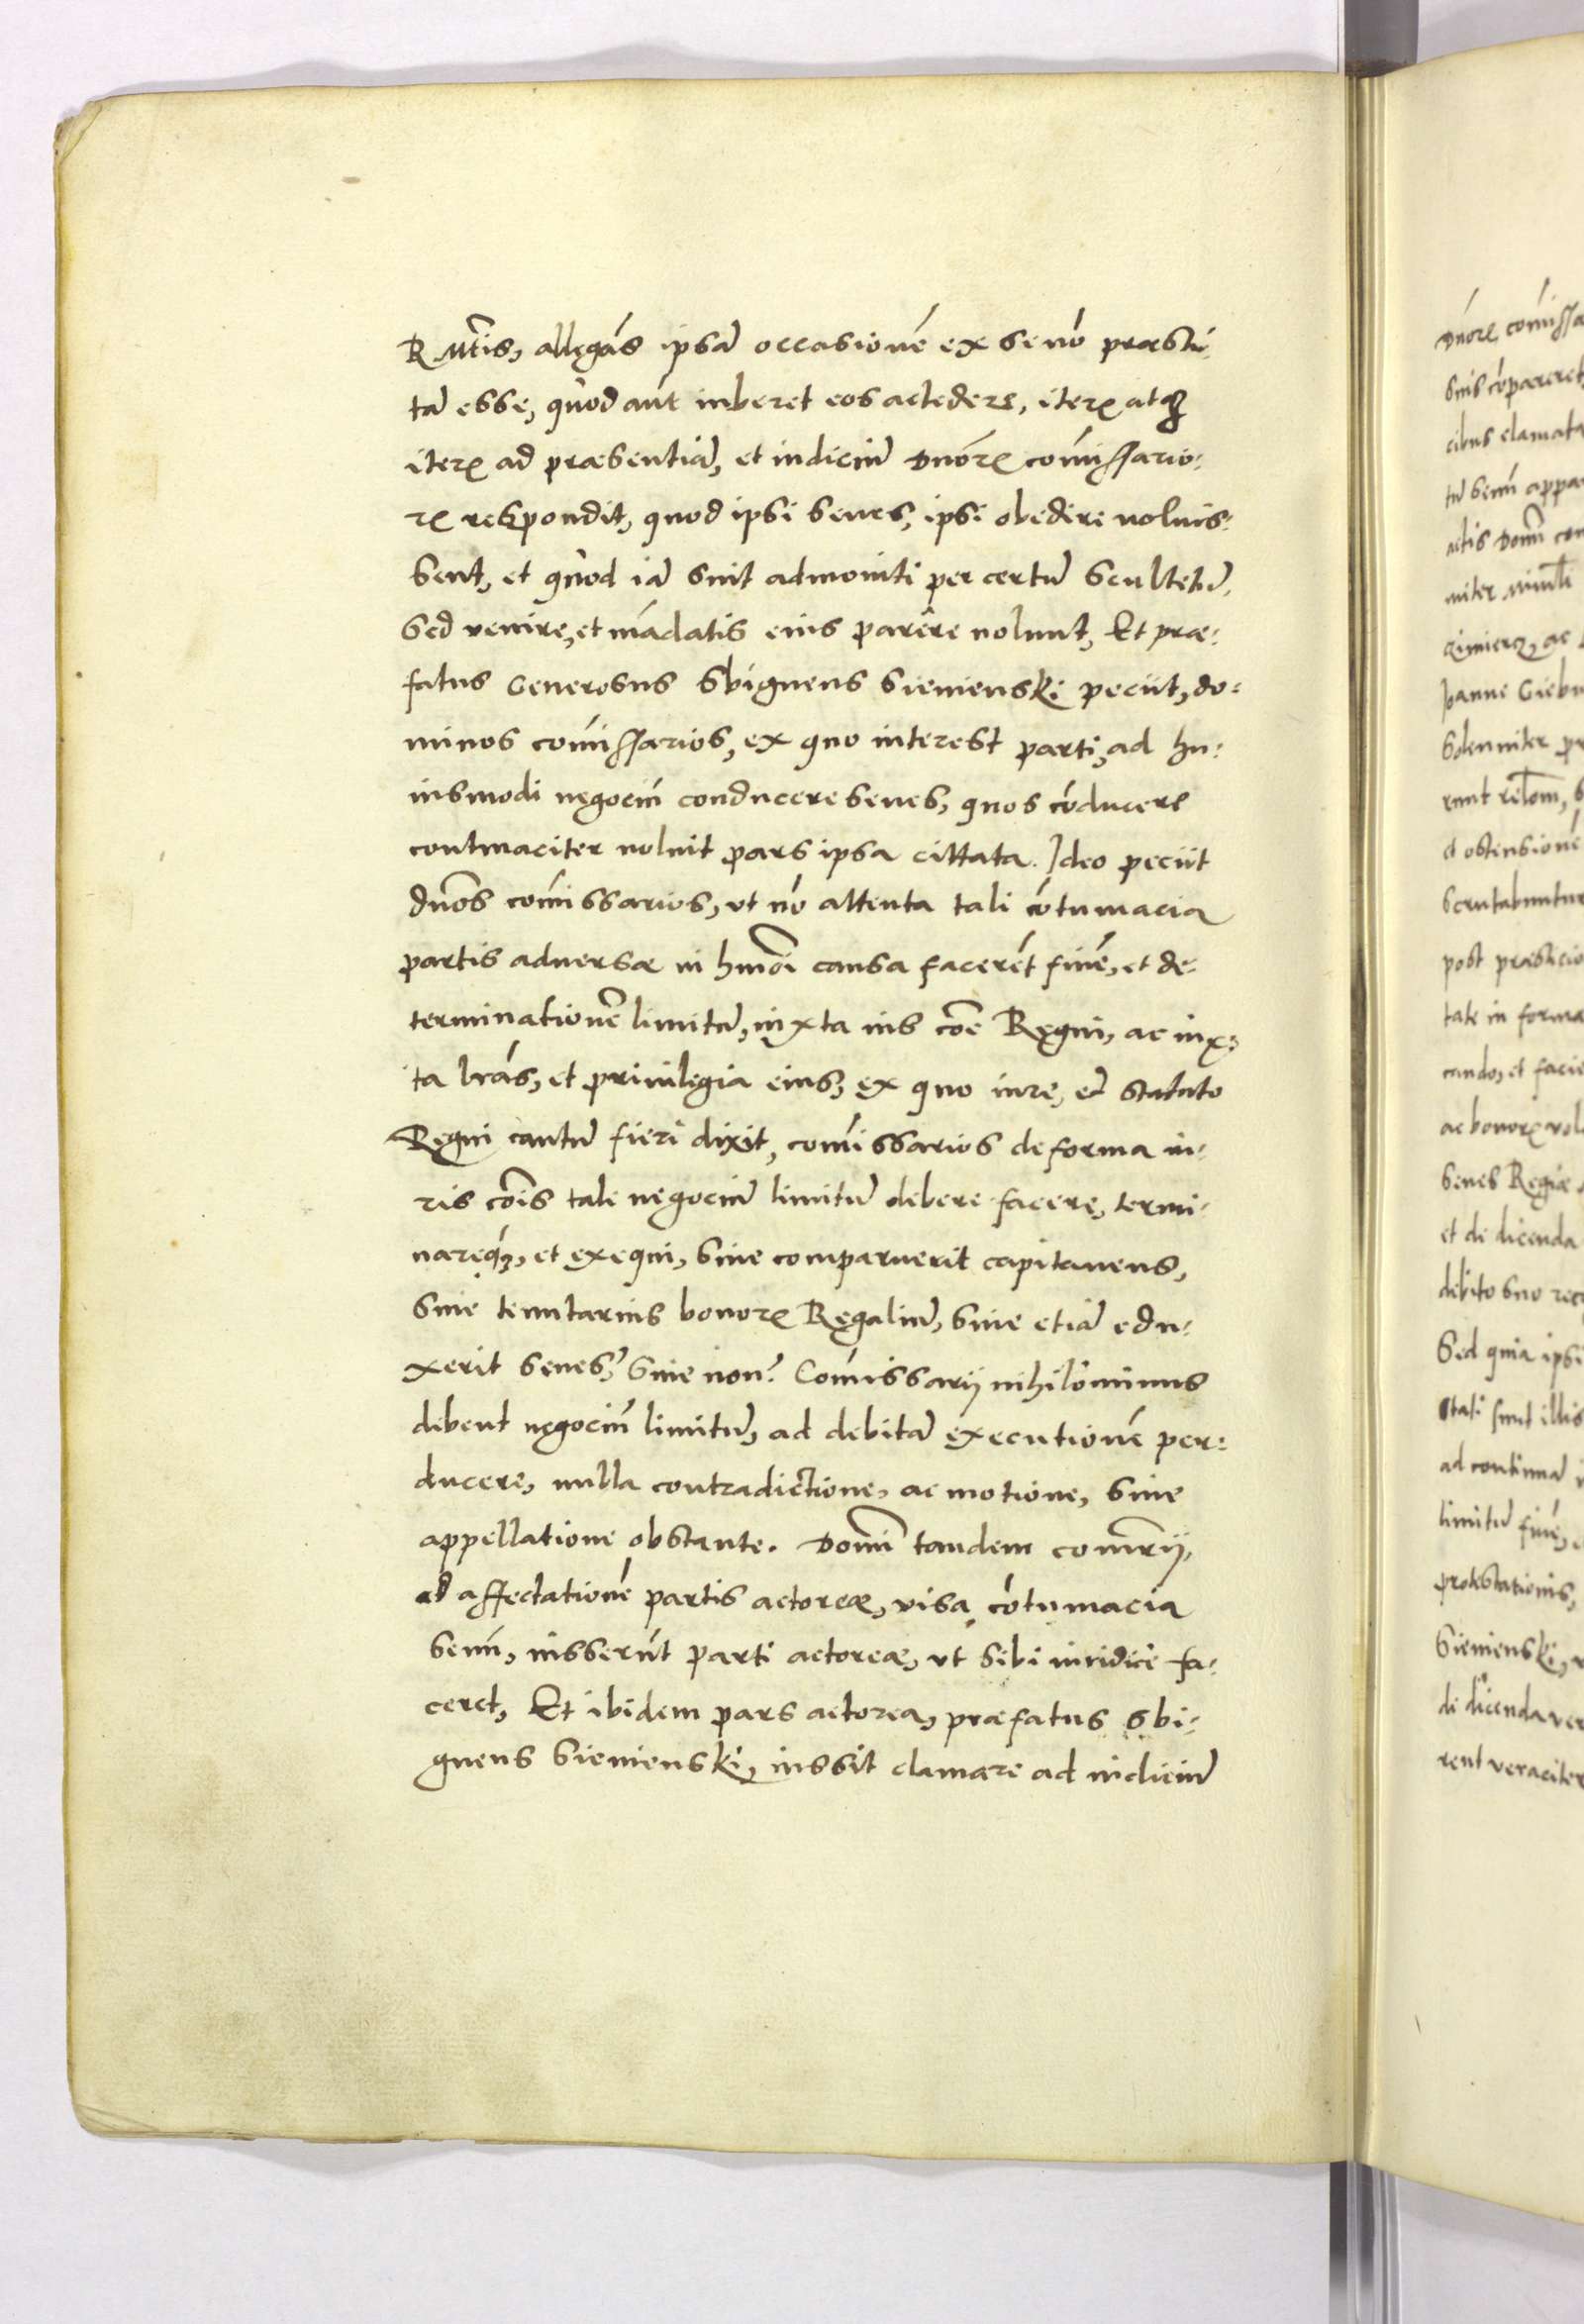 R Mtis, allegās ipsā occasionē ex se nō præsti-
tā esse, quod aūt iuberet eos accedere, iterꝝ atqꝫ
iterꝝ ad præsentiā, et iudiciū Dnōrꝝ com̄issario-
rꝝ respondit, quod ipsi senes, ipsi obedire noluis-
sent, et quod iā sint admoniti per certū scultetū,
sed venire, et mādatis eius parêre nolunt, Et præ-
fatus Generosus Sbigneus Sienienski peciit, do-
minos com̄issarios, ex quo interest parti, ad hu-
iusmodi negociū conducere senes, quos cōducere
contumaciter noluit pars ipsa cittata. Ideo peciit
dnōs com̄issarios, ut nō attenta tali cōtumacia
partis aduersæ in hmōi causa facerēt finē, et de-
terminationē limitū, iuxta ius cōe Regni, ac iux-
ta lrās, et priuilegia eius, ex quo iure, et statuto
Regni cautū fieri dixit, com̄issarios de forma iu-
ris cōis tale negociū limitū debere facere, termi-
nareqꝫ, et exequi, siue comparuerit capitaneus,
siue tenutarius bonorꝝ Regaliū, siue etiā edu-
xerit senes? siue non? Com̄issarij nihilominus
debent negociū limitū, ad debitā executionē per-
ducere, nulla contradictione, ac motione, siue
appellatione obstante. Domī tandem com̄rij,
ad affectationē partis actoreæ, visa cōtumacia
senū, iusserūt parti actoreæ, ut sibi iuridicè fa-
ceret, Et ibidem pars actorea, præfatus Sbi-
gneus Sienienski, iussit clamare ad iudiciū
Dnōrꝝ com̄issa
suis cōpareret,
cibus clamata
tū senū appar
actis Domī com
niter
ac
Joanne Giebu
Solenniter pr
runt relōm, s
et ostensionē
scrutabuntur
post præsticio
tate in forma
cando, et facie
ac bonorꝝ vol
senes Regiæ
et de dicenda
debito suo rec
Sed quia ipsi
stati sunt illis
ad continuā
limitū finē,
protestationis,
Sienienski,
de dicenda ver
rent veraciter